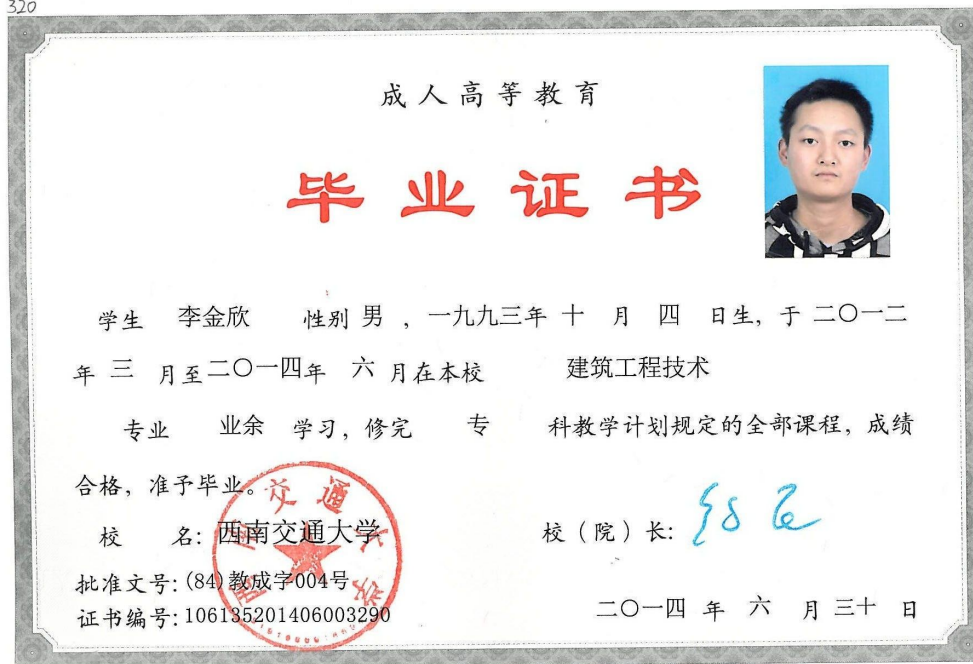 320
成人高等教育
毕业证书
学生 李金欣 性别 男 ，一九九三年 十 月 四 日生，于 二〇一二
年 三 月至二〇一四年 六 月在本校 建筑工程技术
专业 业余 学习，修完 专 科教学计划规定的全部课程，成绩
合格，准予毕业。
校 名：西南交通大学 校（院）长：
批准文号：(84)教成字004号
证书编号：106135201406003290
二〇一四 年 六 月 三十 日
西南交通大学